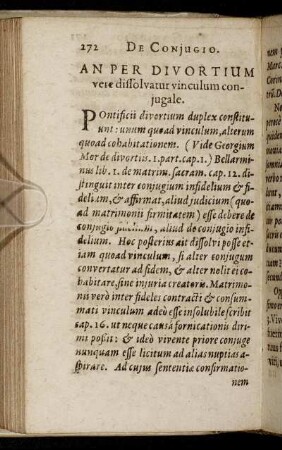 272 DE CONJUGIO.
AN PER DIVORTIUM
vere dissolvatur vinculum con-
jugale.
POntificii divertium duplex constitu-
unt: unum quoad vinculum, alterum
quoad cohabitationem. (Vide Georgium
Mor de divortiis. 1. part. cap. 1.) Bellarmi-
nus lib. 1. de matrim. sacram. cap. 12. di-
stinguit inter conjugium infidelium & fi-
delium, & affirmat, aliud judicium (quo-
ad matrimonii firmitatem) esse debere de
conjugio fidelium, aliud de conjugio infi-
delium. Hoc posterius ait dissolvi posse et-
iam quoad vinculum, si alter conjugum
convertatur ad fidem, & alter nolit ei co-
habitare, sine injuria creatoris. Matrimo-
nis verò inter fideles contracti & consum-
mati vinculum adeò esse insolubile scribit
cap. 16. ut neque causâ fornicationis diri-
mi possit: & ideò vivente priore conjuge
nunquam esse licitum ad alias nuptias a-
spirare. Ad cujus sententiæ confirmatio-
nem